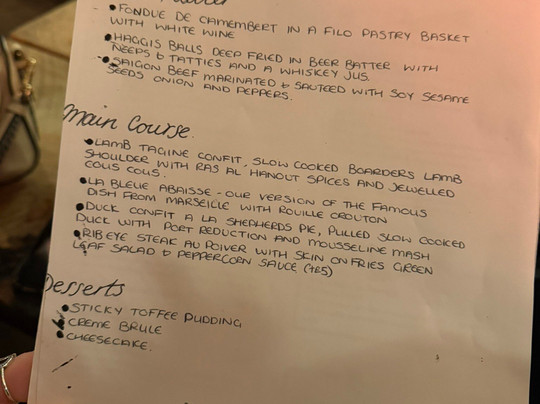 • FONDUE DE CAMEMBERT IN A FILO PASTRY BASKET
WITH WHITE WINE
• HAGGIS BALLS DEEP FRIED IN BEER BATTER WITH
NEEPS & TATTIES AND A WHISKEY JUS.
• SAIGON BEEF MARINATED & SAUTEED WITH SOY SESAME
SEEDS ONION AND PEPPERS.
Main Course.
• LAMB TAGINE CONFIT, SLOW COOKED BOARDERS LAMB
SHOULDER WITH RAS AL HANOUT SPICES AND JEWELLED
COUS COUS.
• LA BLEUE ABAISSE - OUR VERSION OF THE FAMOUS
DISH FROM MARSEILLE WITH ROUILLE CROUTON
• DUCK CONFIT A LA SHEPHERDS PIE, PULLED SLOW COOKED
DUCK WITH PORT REDUCTION AND MOUSSELINE MASH
• RIBEYE STEAK AU POIVER WITH SKIN ON FRIES GREEN
LEAF SALAD & PEPPERCORN SAUCE (+£5)
Desserts
• STICKY TOFFEE PUDDING
• CREME BRULE
• CHEESECAKE.